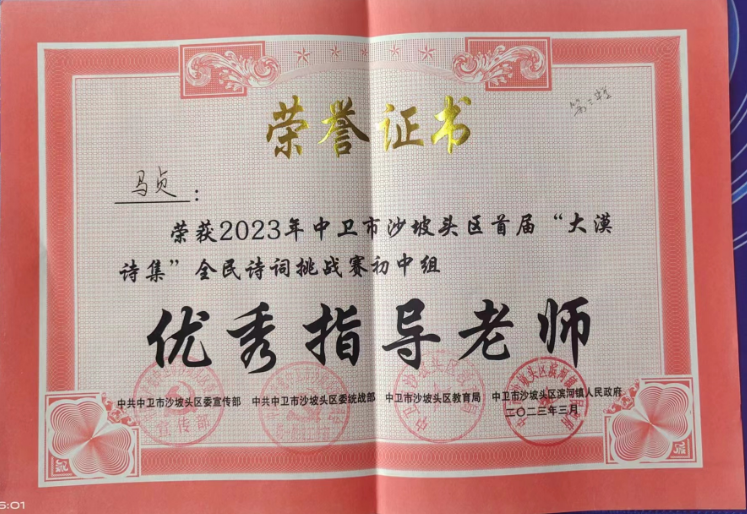 荣誉证书
马贞：
荣获2023年中卫市沙坡头区首届“大漠
诗集”全民诗词挑战赛初中组
优秀指导老师
中共中卫市沙坡头区委宣传部 中共中卫市沙坡头区委统战部 中卫市沙坡头区教育局 中卫市沙坡头区滨河镇人民政府
二〇二三年三月
5:01